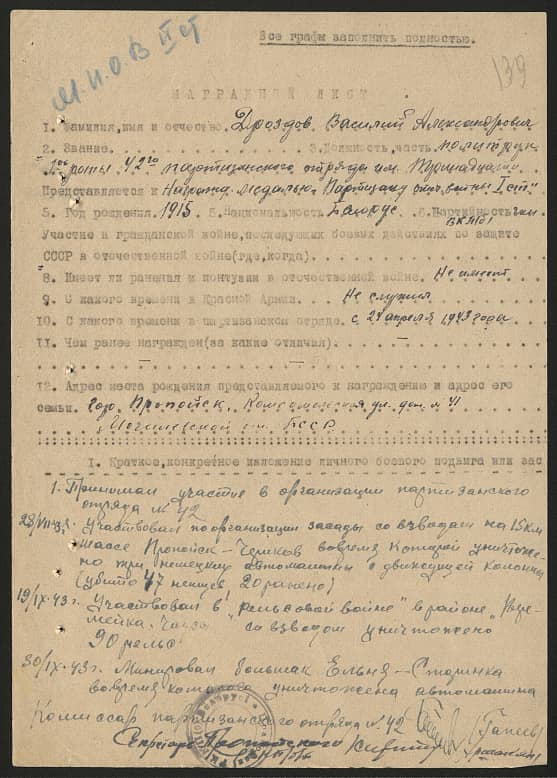 Все графы заполнить полностью.
139
НАГРАДНОЙ ЛИСТ
1. Фамилия, имя и отчество. Дроздов Василий Александрович
2. Звание. 3. Должность, часть политрук
роты 42го партизанского отряда им.
Представляется к Награжд. медалью "Партизану отеч. войны I ст"
5. Год рождения. 1915 5. Национальность Белорус 6. Партийность
ВКП(б)
Участие в гражданской войне, последующих боевых действиях по защите
СССР в отечественной войне(где, когда).
8. Имеет ли ранения и контузии в отечественной войне. Не имеет
9. С какого времени в Красной Армии. Не служил
10. С какого времени в партизанском отряде. с 24 апреля 1943 года
11. Чем ранее награжден(за какие отличия). —
12. Адрес места рождения представляемого к награждению и адрес его
семьи. гор. Пропойск, Комсомольская ул. дом №
Могилевской БССР
I. Краткое, конкретное изложение личного боевого подвига или зас
1. Принимал участие в организации партизанского
отряда № 42
Участвовал по организации засады со взводом на 15 км
шассе Пропойск – Чериков вовремя которой уничтоже-
но три немецких автомашины с движущей колонны
(убито 47 немцев, 20 ранено)
19/IX-43г. Участвовал в "рельсовой войне" в районе
со взводом уничтожено
90 рельс
30/IX-43г. Минировал большак Ельня – Сталинка
вовремя которого уничтожена автомашина
Комиссар партизанского отряда № 42
Секретарь Пропойского